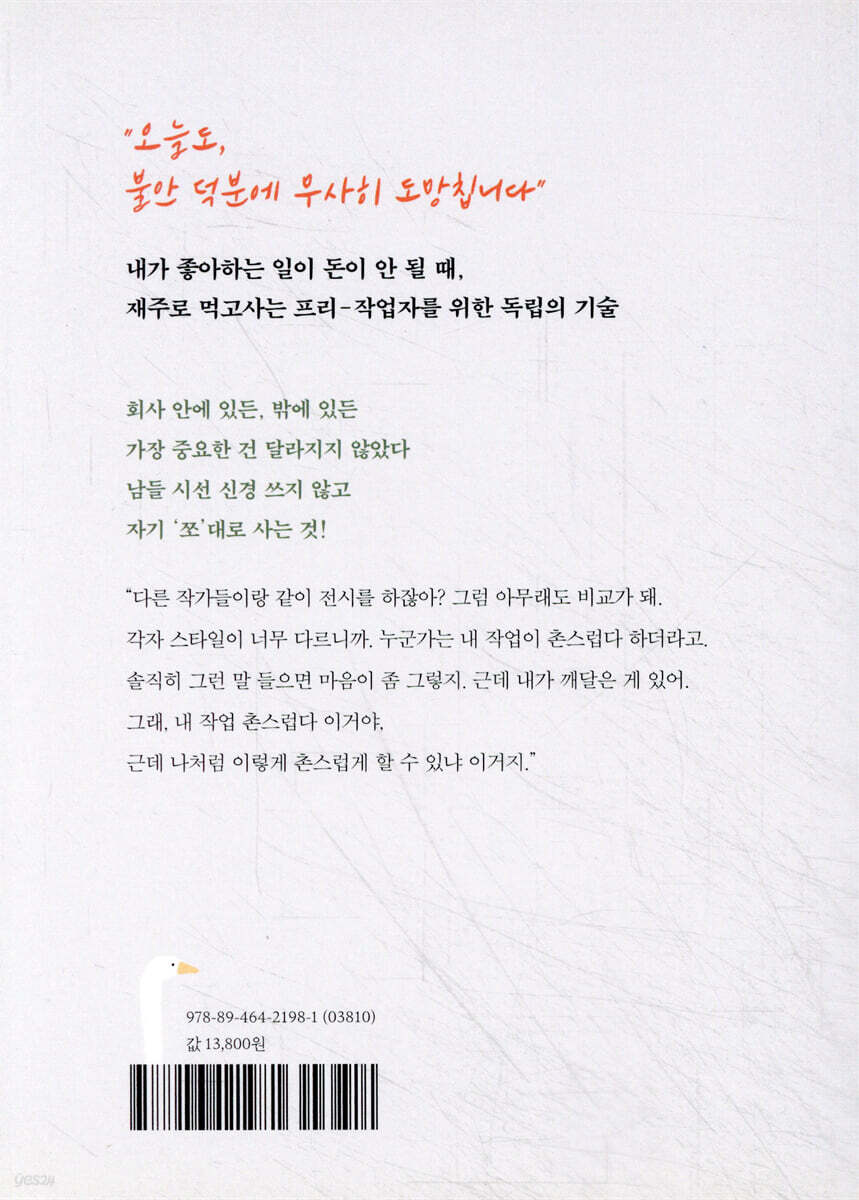 "오늘도,
불안 덕분에 무사히 도망칩니다"
내가 좋아하는 일이 돈이 안 될 때,
재주로 먹고사는 프리-작업자를 위한 독립의 기술
회사 안에 있든, 밖에 있든
가장 중요한 건 달라지지 않았다
남들 시선 신경 쓰지 않고
자기 ‘쪼’대로 사는 것!
“다른 작가들이랑 같이 전시를 하잖아? 그럼 아무래도 비교가 돼.
각자 스타일이 너무 다르니까. 누군가는 내 작업이 촌스럽다 하더라고.
솔직히 그런 말 들으면 마음이 좀 그렇지. 근데 내가 깨달은 게 있어.
그래, 내 작업 촌스럽다 이거야,
근데 나처럼 이렇게 촌스럽게 할 수 있냐 이거지.”
978-89-464-2198-1 (03810)
값 13,800원
yes24